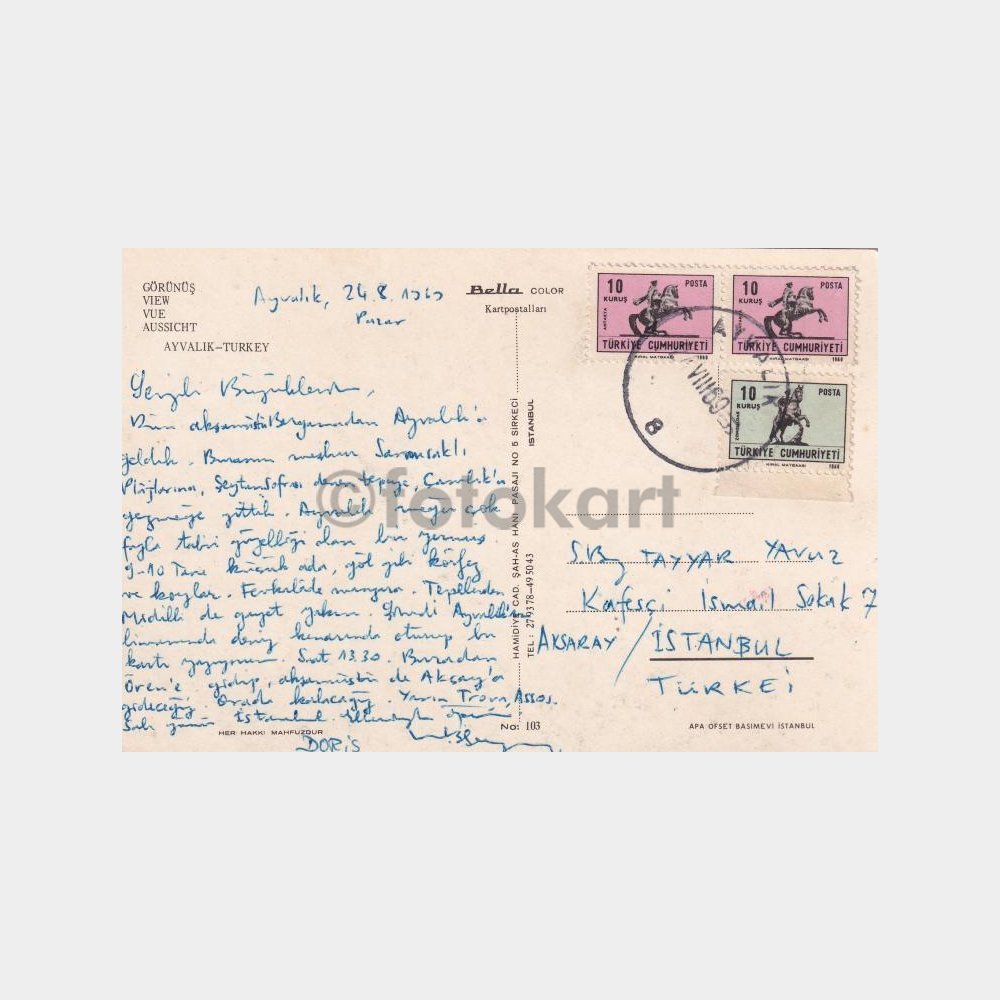 GÖRÜNÜŞ
VIEW
VUE
AUSSICHT
AYVALIK-TURKEY
Ayvalık, 24.8.1969
Pazar
Bella COLOR
Kartpostalları
10 KURUŞ POSTA
ANTAKYA
TÜRKİYE CUMHURİYETİ
KIRAL MATBAASI 1968
10 KURUŞ POSTA
TÜRKİYE CUMHURİYETİ
KIRAL MATBAASI 1968
10 KURUŞ POSTA
ZONGULDAK
TÜRKİYE CUMHURİYETİ
KIRAL MATBAASI 1968
AYVALIK
VIII 69
8
Sevgili Büyüklerim,
Dün akşamüstü Bergamadan Ayvalık'a
geldik. Buranın meşhur Sarmısaklı
Plajlarına, Şeytan Sofrası denen tepeye, Çamlık'a
gezmeğe gittik. Ayvalık meğer çok
fazla tabii güzelliği olan bir yermiş.
9-10 Tane küçük ada, göl gibi körfez
ve koylar. Fevkalâde manzara. Tepelerden
Midilli de gayet yakın. Şimdi Ayvalık'ın
limanında deniz kenarında oturup bu
kartı yazıyorum. Saat 13.30. Buradan
Ören'e gidip, akşamüstü de Akçay'a
gideceğiz. Orada kalacağız. Yarın Trova, Assos.
Salı günü İstanbul.
DORİS
HER HAKKI MAHFUZDUR
HAMİDİYE CAD. ŞAH-AS HAN PASAJI NO 5 SİRKECİ
TEL: 27 93 78-49 50 43 İSTANBUL
No: 103
S. Bay TAYYAR YAVUZ
Kafesçi İsmail Sokak 7
AKSARAY / İSTANBUL
TÜRKEİ
APA OFSET BASIMEVİ İSTANBUL
©fotokart